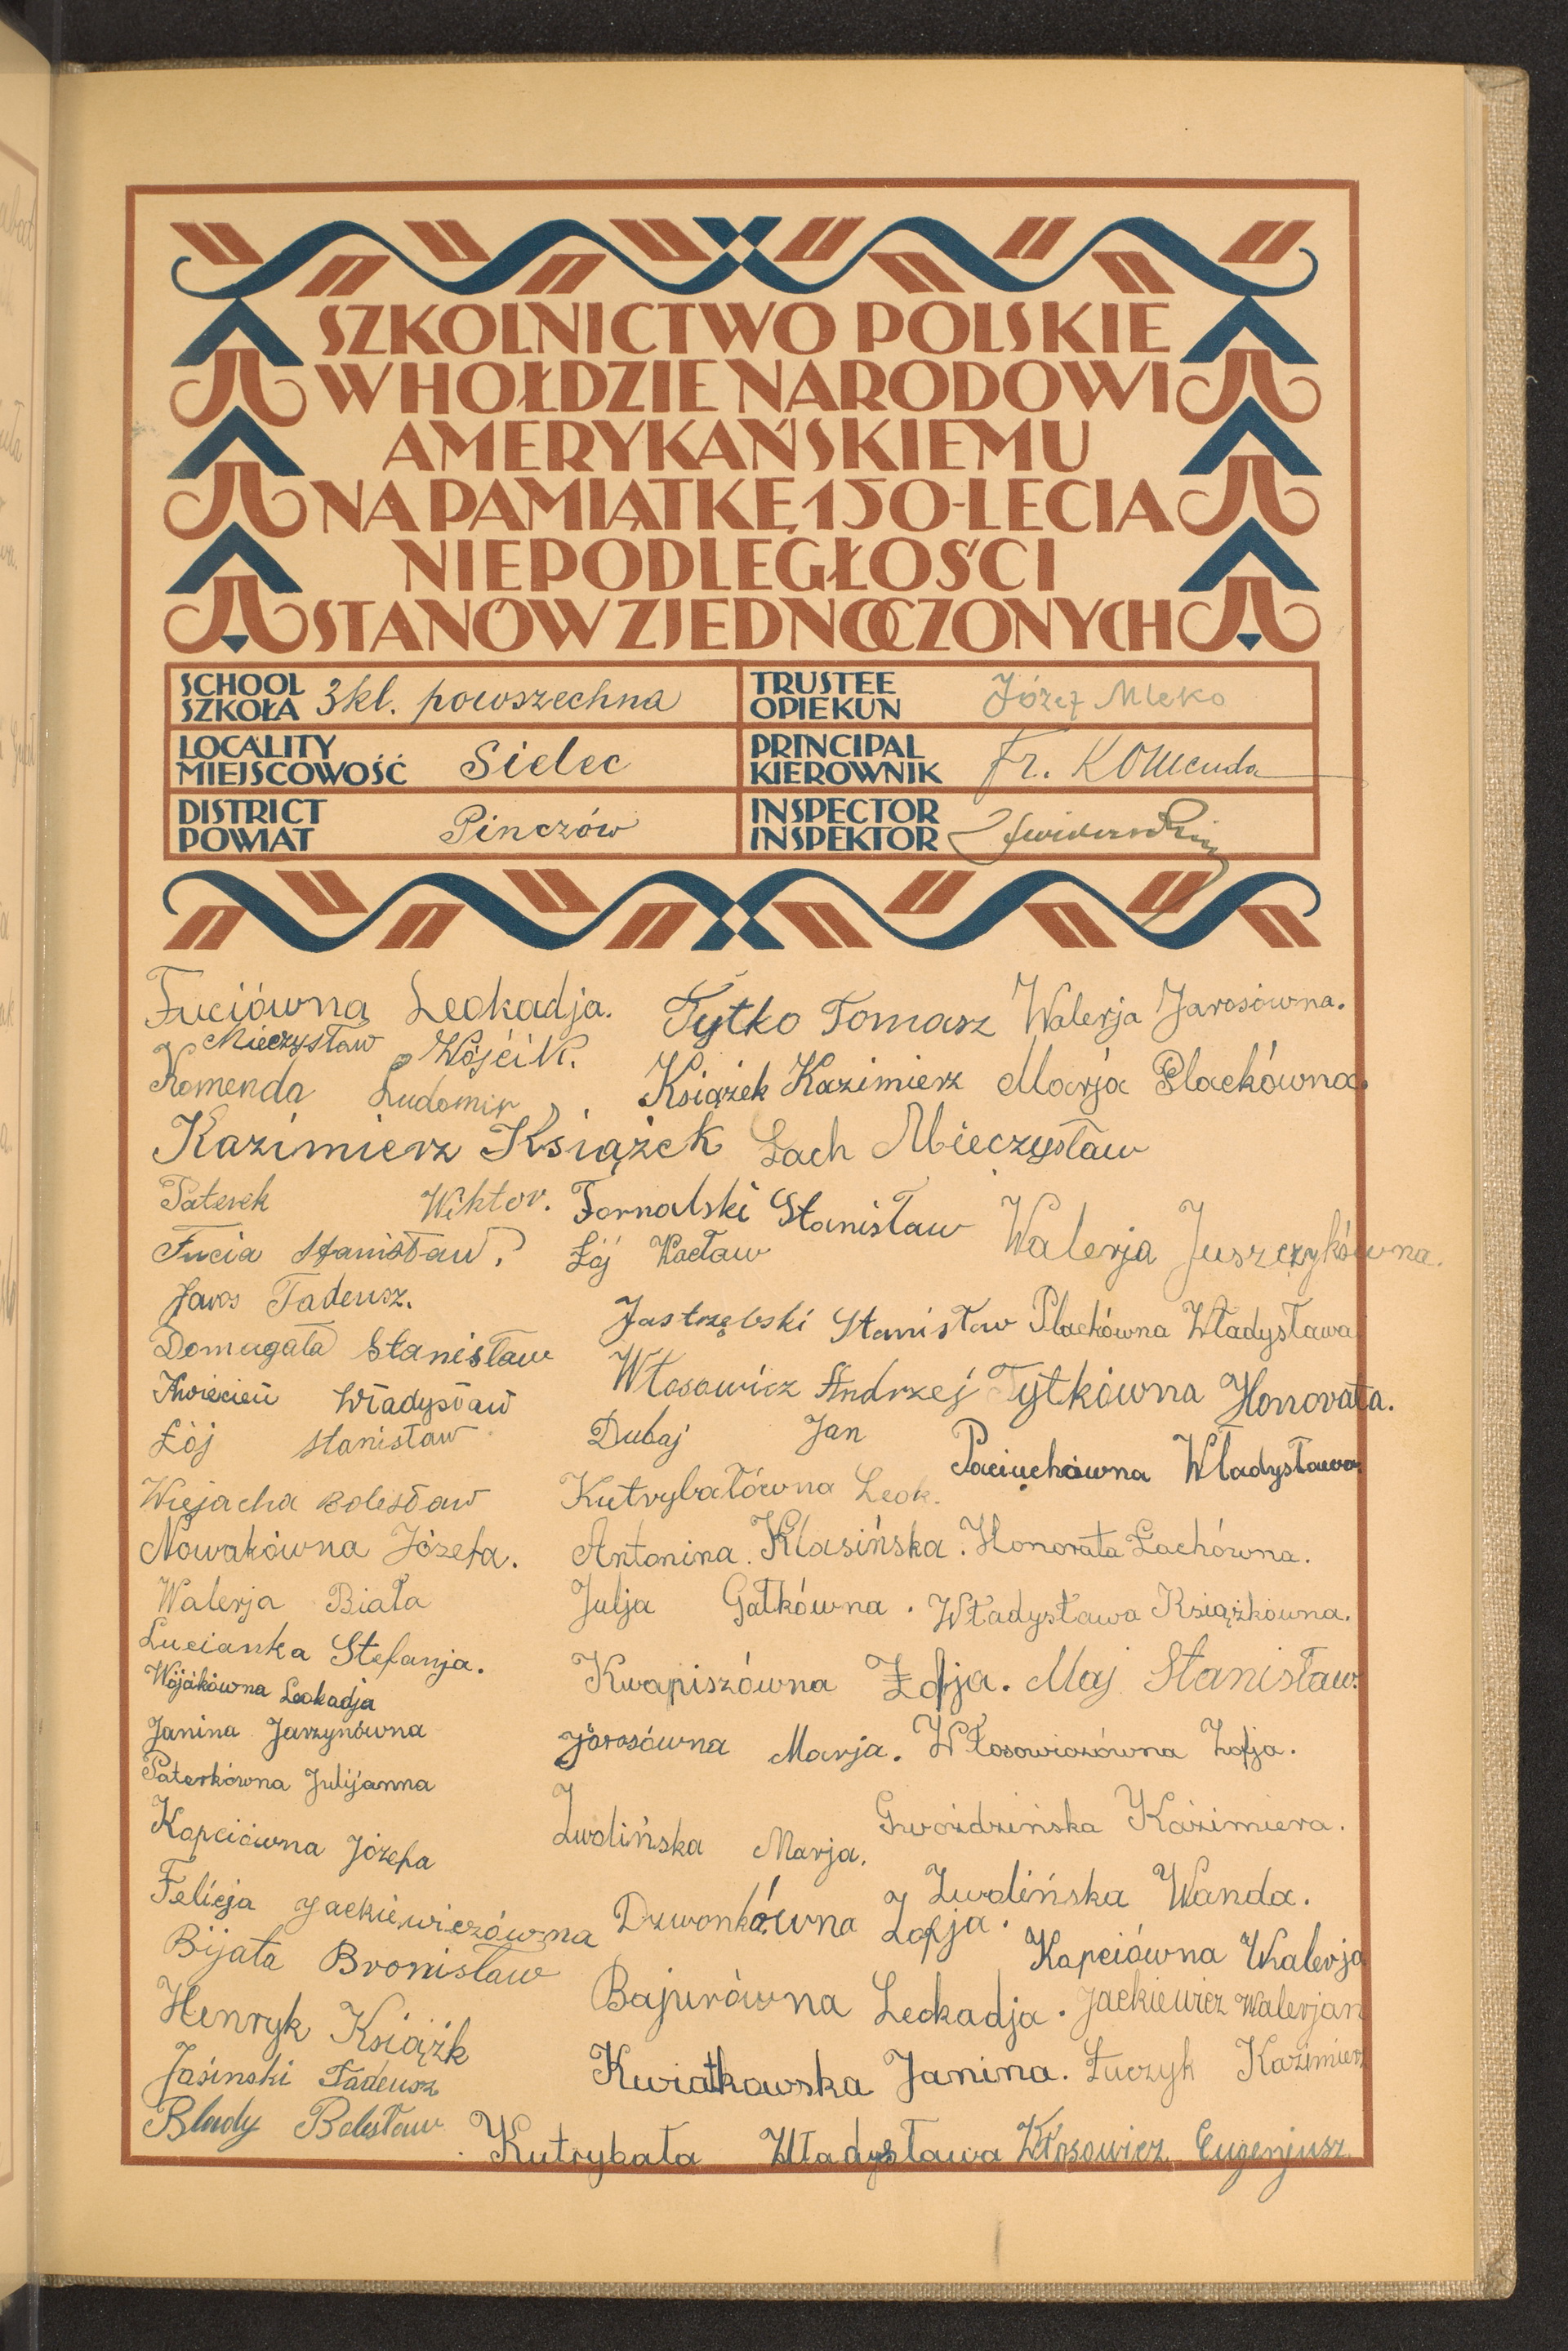 SZKOLNICTWO POLSKIE
W HOŁDZIE NARODOWI
AMERYKAŃSKIEMU
NA PAMIĄTKĘ 150-LECIA
NIEPODLEGŁOŚCI
STANÓW ZJEDNOCZONYCH
SCHOOL
SZKOŁA 3kl. powszechna
TRUSTEE
OPIEKUN Józef Mleko
LOCALITY
MIEJSCOWOŚĆ Sielec
PRINCIPAL
KIEROWNIK Fr. Komenda
DISTRICT
POWIAT Pinczów
INSPECTOR
INSPEKTOR
Fuciówna Leokadja. Tytko Tomasz Walerja Jarosówna.
Mieczysław Wójcik.
Komenda Ludomir Książek Kazimierz Marja Plackówna.
Kazimierz Książek Lach Mieczysław
Paterek Wiktor. Fornalski Stanisław Walerja Juszczykówna.
Fucia Stanisław. Łój Wacław
Jaros Tadeusz. Jastrzębski Stanisław Plackówna Władysława
Domagała Stanisław Włosowicz Andrzej Tytkówna Honorata.
Kwiecień Władysław Dubaj Jan Paciuchówna Władysława
Łój Stanisław
Wiejacha Bolesław Kutrybałówna Leok.
Nowakówna Józefa. Antonina Klasińska. Honorata Lachówna.
Walerja Biała Julja Gałkówna. Władysława Książkówna.
Lucianka Stefanja. Kwapiszówna Zofja. Maj Stanisław.
Wójcikówna Leokadja
Janina Jarzynówna Jarosówna Marja. Włosowiczówna Zofja.
Paterkówna Julijanna
Kapciówna Józefa Zwolińska Marja. Gwoździńska Kazimiera.
Felicja Jackiewiczówna Dzwonkówna Zofja. Zwolińska Wanda.
Bijata Bronisław Kapciówna Walerja
Henryk Książk Bajurówna Leokadja. Jackiewicz Walerjan
Jasinski Tadeusz Kwiatkowska Janina. Łuczyk Kazimierz
Blady Bolesław Kutrybała Władysława Włosowicz Eugenjusz